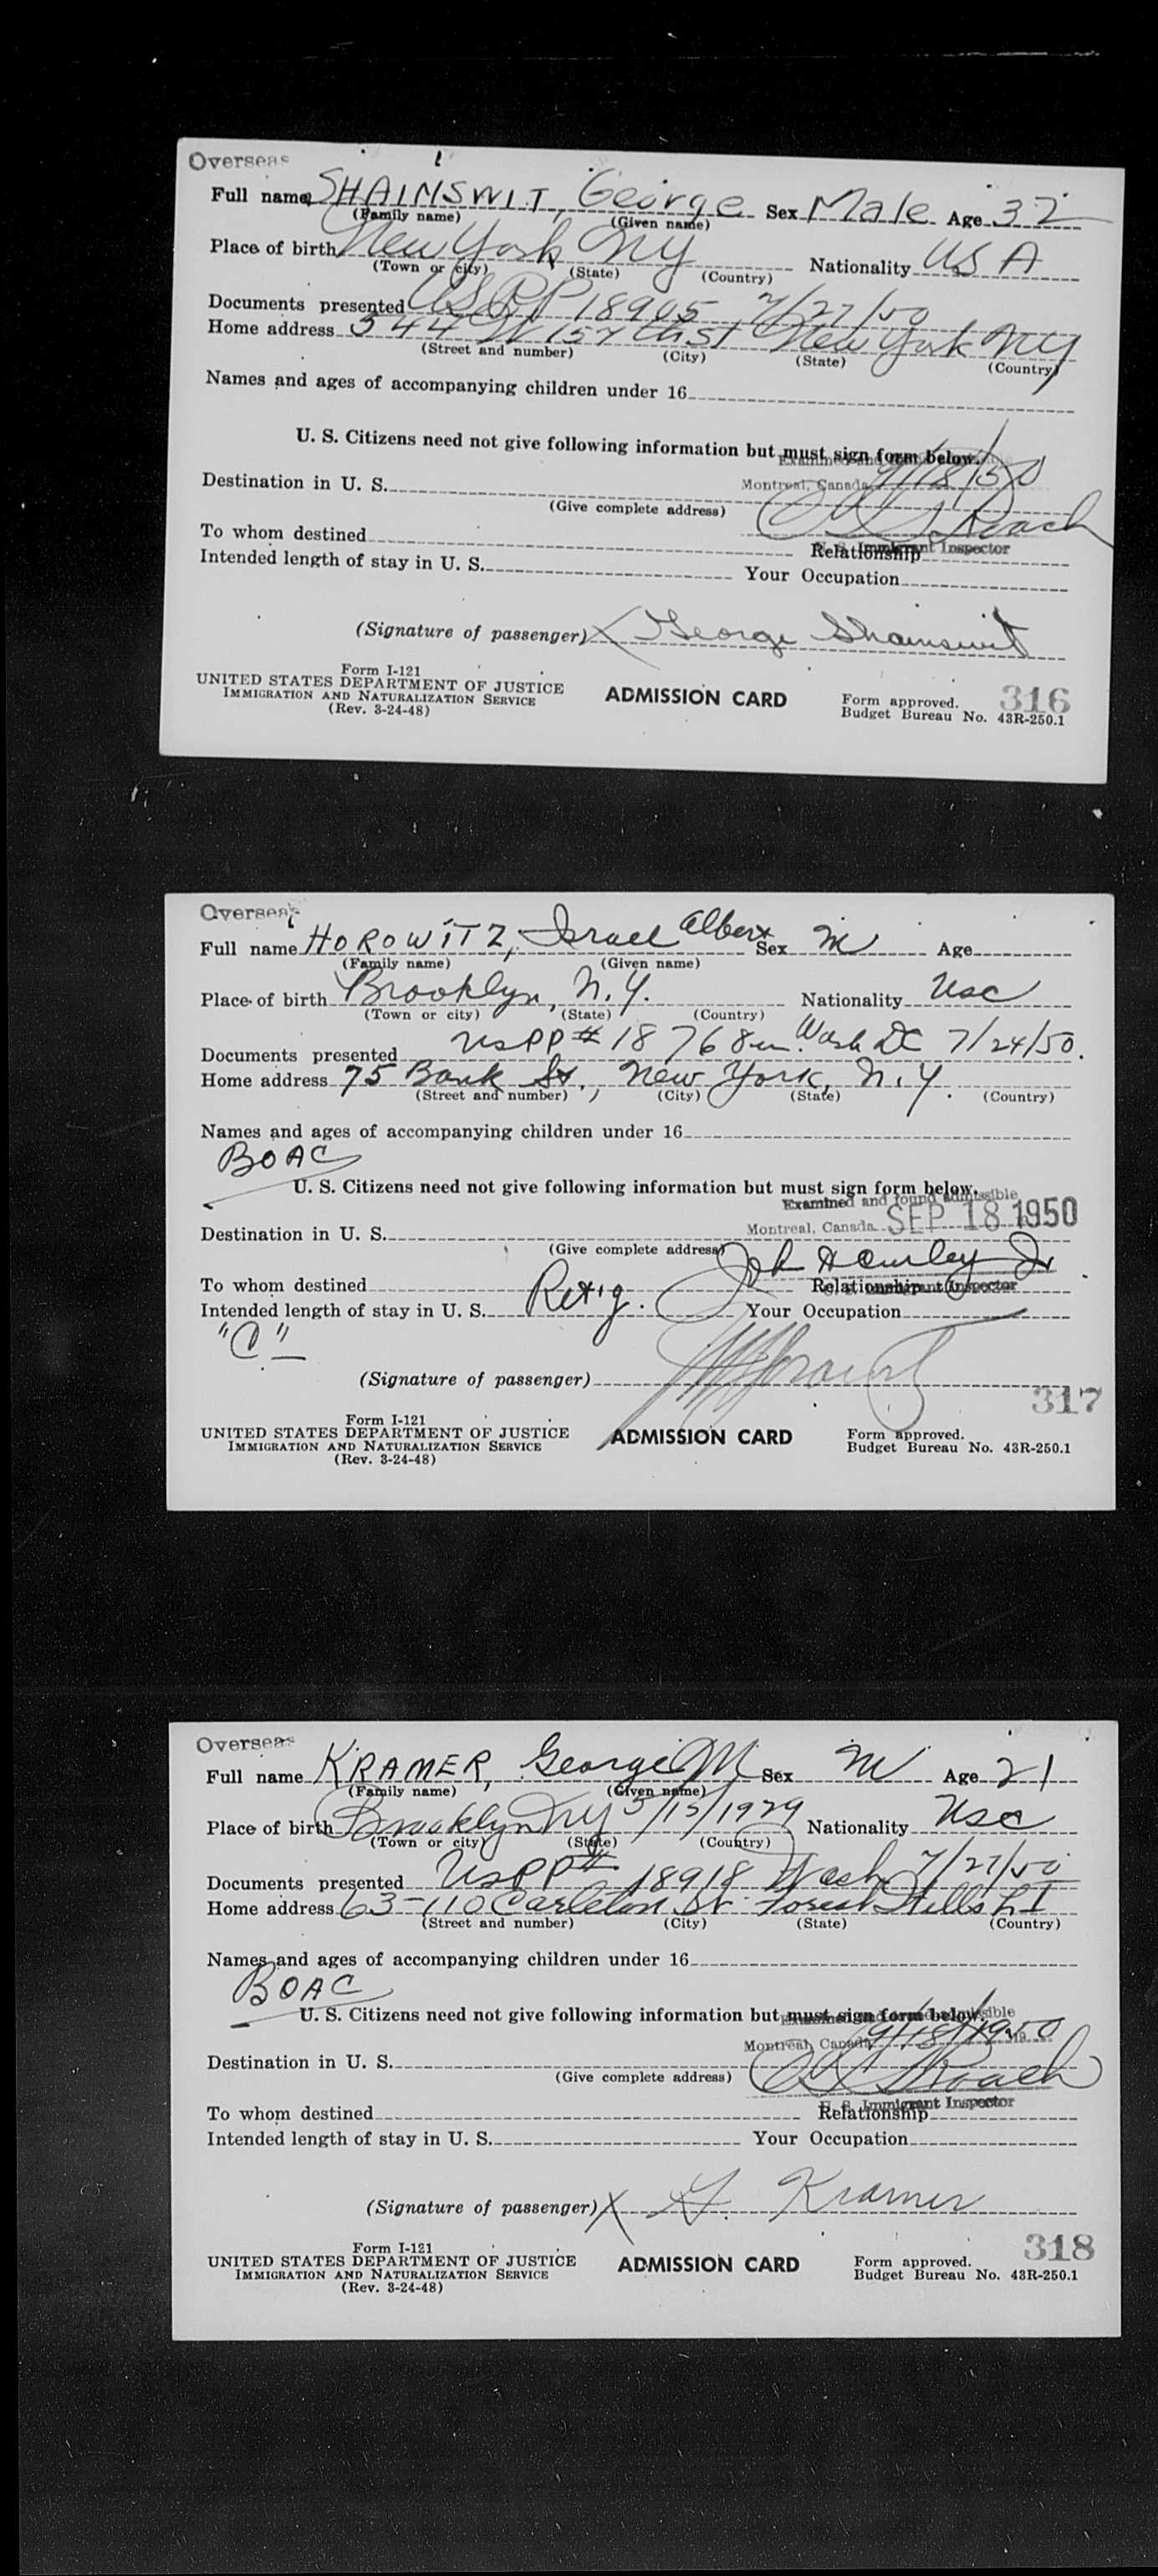 Overseas
Full name SHAINSWIT, George Sex Male Age 32
(Family name) (Given name)
Place of birth New York NY Nationality USA
(Town or city) (State) (Country)
Documents presented USPP 18905 7/27/50
Home address 544 W 157th St New York NY
(Street and number) (City) (State) (Country)
Names and ages of accompanying children under 16
U. S. Citizens need not give following information but must sign form below.
Examined and
Montreal, Canada 9/18/50
Destination in U. S.
(Give complete address)
Roach
To whom destined Relationship
Immigrant Inspector
Intended length of stay in U. S. Your Occupation
(Signature of passenger) X George Shainswit
Form I-121
UNITED STATES DEPARTMENT OF JUSTICE
IMMIGRATION AND NATURALIZATION SERVICE
(Rev. 3-24-48)
ADMISSION CARD
Form approved. 316
Budget Bureau No. 43R-250.1
Overseas
Full name HOROWITZ, Israel Albert Sex M Age
(Family name) (Given name)
Place of birth Brooklyn, N.Y. Nationality Usc
(Town or city) (State) (Country)
Documents presented USPP # 18768 Wash DC 7/24/50.
Home address 75 Bank St., New York, N.Y.
(Street and number) (City) (State) (Country)
Names and ages of accompanying children under 16
BOAC
U. S. Citizens need not give following information but must sign form below.
Examined and found admissible
Montreal, Canada SEP 18 1950
Destination in U. S.
(Give complete address)
To whom destined Relationship
Immigrant Inspector
Intended length of stay in U. S. Your Occupation
"C"
(Signature of passenger)
317
Form I-121
UNITED STATES DEPARTMENT OF JUSTICE
IMMIGRATION AND NATURALIZATION SERVICE
(Rev. 3-24-48)
ADMISSION CARD
Form approved.
Budget Bureau No. 43R-250.1
Overseas
Full name KRAMER, George M Sex M Age 21
(Family name) (Given name)
Place of birth Brooklyn NY 5/15/1929 Nationality Usc
(Town or city) (State) (Country)
Documents presented USPP# 18918 Wash 7/27/50
Home address 63-110 Carleton St Forest Hills LI
(Street and number) (City) (State) (Country)
Names and ages of accompanying children under 16
BOAC
U. S. Citizens need not give following information but must sign form below.
Montreal, Canada 9/18/1950
Destination in U. S.
(Give complete address)
Roach
To whom destined Relationship
U. S. Immigrant Inspector
Intended length of stay in U. S. Your Occupation
(Signature of passenger) X G. Kramer
318
Form I-121
UNITED STATES DEPARTMENT OF JUSTICE
IMMIGRATION AND NATURALIZATION SERVICE
(Rev. 3-24-48)
ADMISSION CARD
Form approved.
Budget Bureau No. 43R-250.1